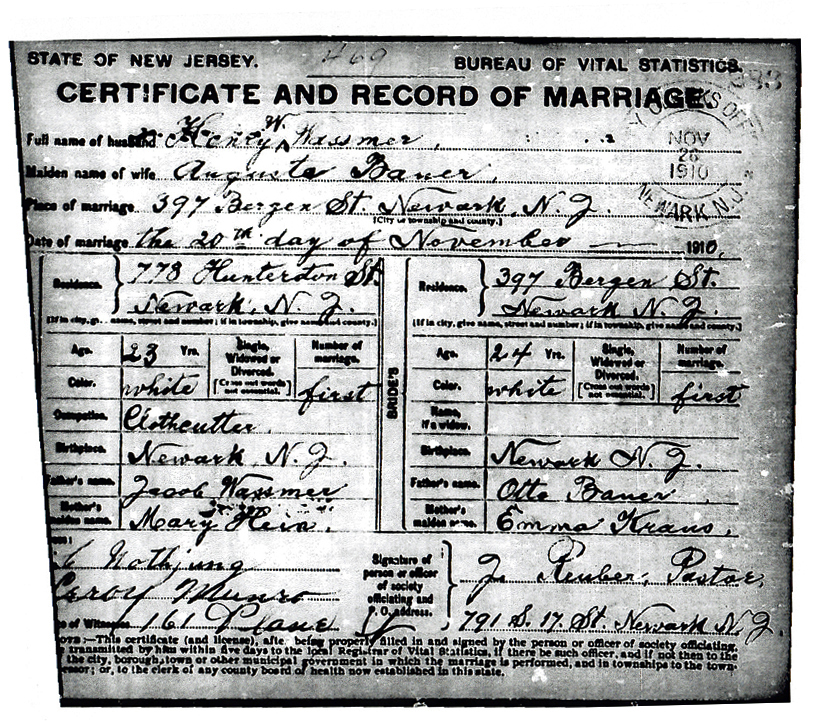 STATE OF NEW JERSEY. 469 BUREAU OF VITAL STATISTICS.
CERTIFICATE AND RECORD OF MARRIAGE.
Full name of husband Henry W. Wassmer,
Maiden name of wife Auguste Bauer,
Place of marriage 397 Bergen St. Newark, N. J.
(City or township and county.)
Date of marriage the 20th day of November 1910.
NOV
26
1910
NEWARK N.J.
Residence. 773 Hunterdon St.
Newark, N. J.
name, street and number; if in township, give name and county.)
Age. 23 Yrs. Single, Widowed or Divorced. [Cross out words not essential.] Number of marriage.
Color. white first
Occupation. Clothcutter.
Birthplace. Newark N. J.
Father's name. Jacob Wassmer
Mother's maiden name. Mary
BRIDE'S
Residence. 397 Bergen St.
Newark N. J.
(If in city, give name, street and number; if in township, give name and county.)
Age. 24 Yrs. Single, Widowed or Divorced. [Cross out words not essential.] Number of marriage.
Color. white first
Name, if a widow.
Birthplace. Newark N. J.
Father's name. Otto Bauer
Mother's maiden name. Emma Kraus,
Nothjung
Leroy Munro
of Witnesses 161 Plane
Signature of person or officer of society officiating and P. O. address. J. Reuber, Pastor,
791 S. 17. St. Newark N. J.
NOTE:—This certificate (and license), after being properly filled in and signed by the person or officer of society officiating,
transmitted by him within five days to the local Registrar of Vital Statistics, if there be such officer, and if not then to the
the city, borough, town or other municipal government in which the marriage is performed, and in townships to the town-
essor; or, to the clerk of any county board of health now established in this state.